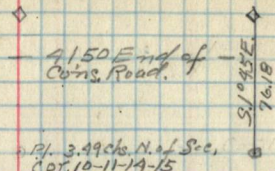 4150 End of
Cons. Road.
S.1°45E.
76.18
P.I. 3.49chs. N. of Sec.
Cor. 10-11-14-15